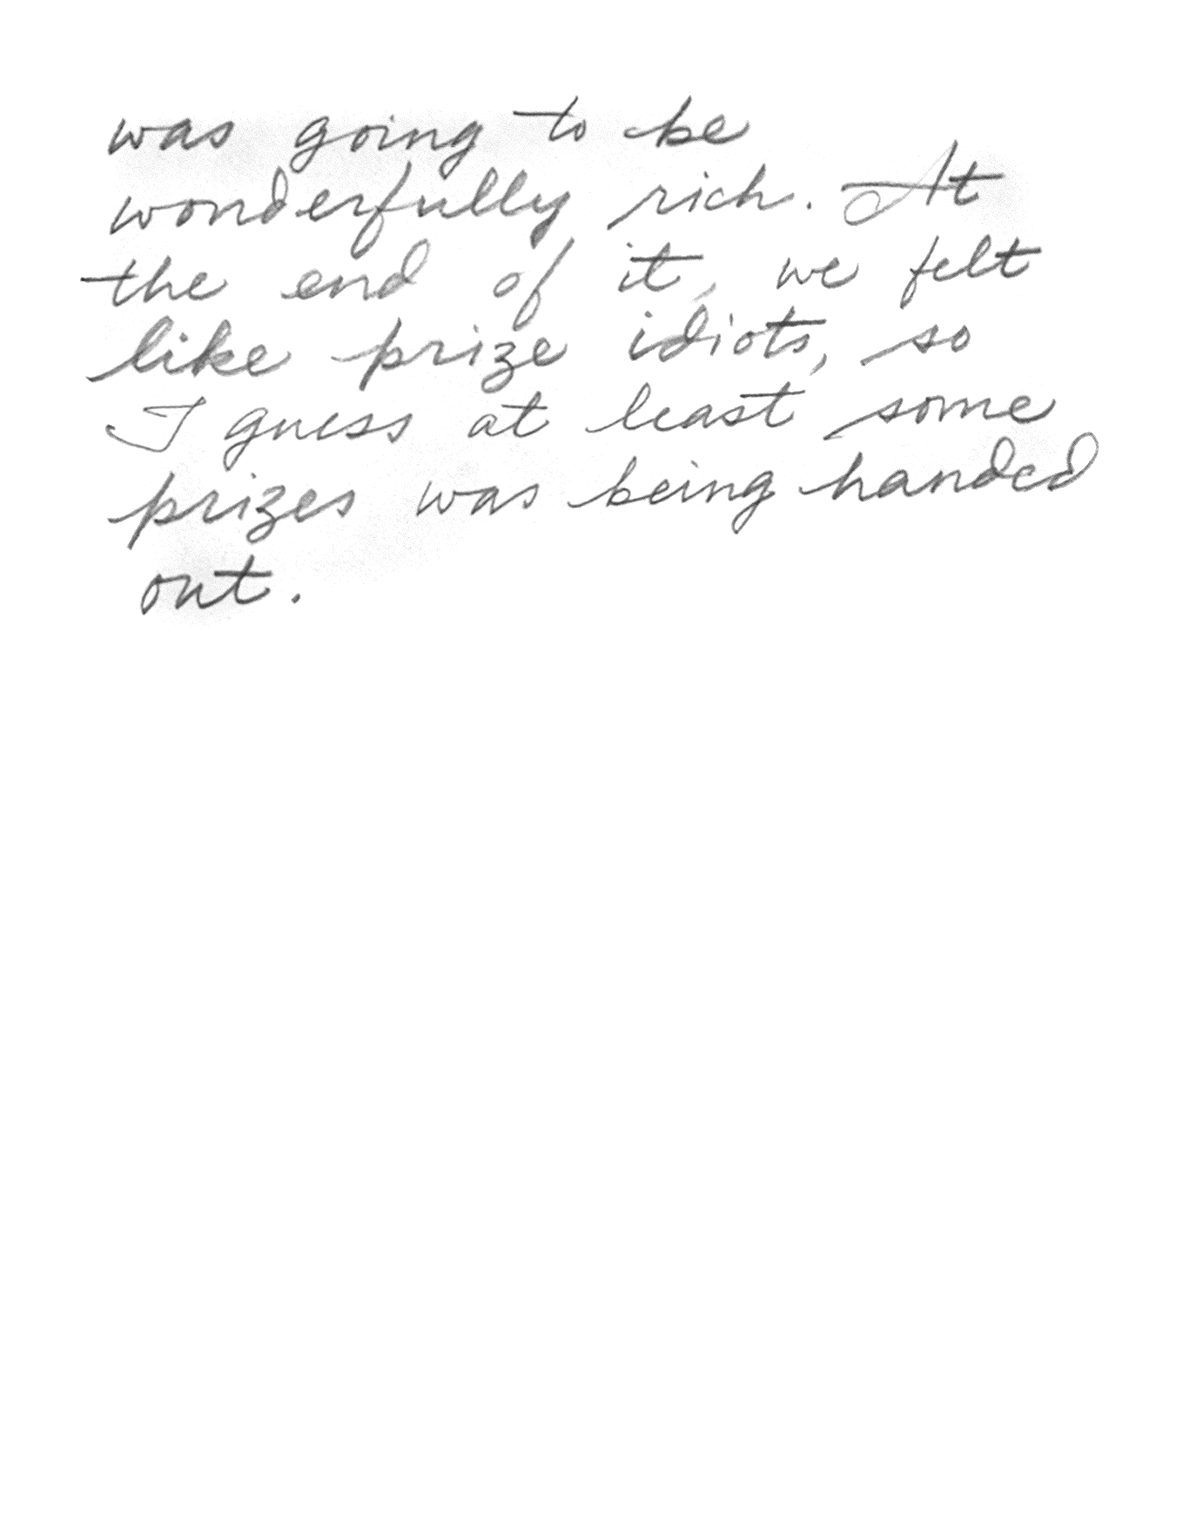 was going to be
wonderfully rich. At
the end of it, we felt
like prize idiots, so
I guess at least some
prizes was being handed
out.